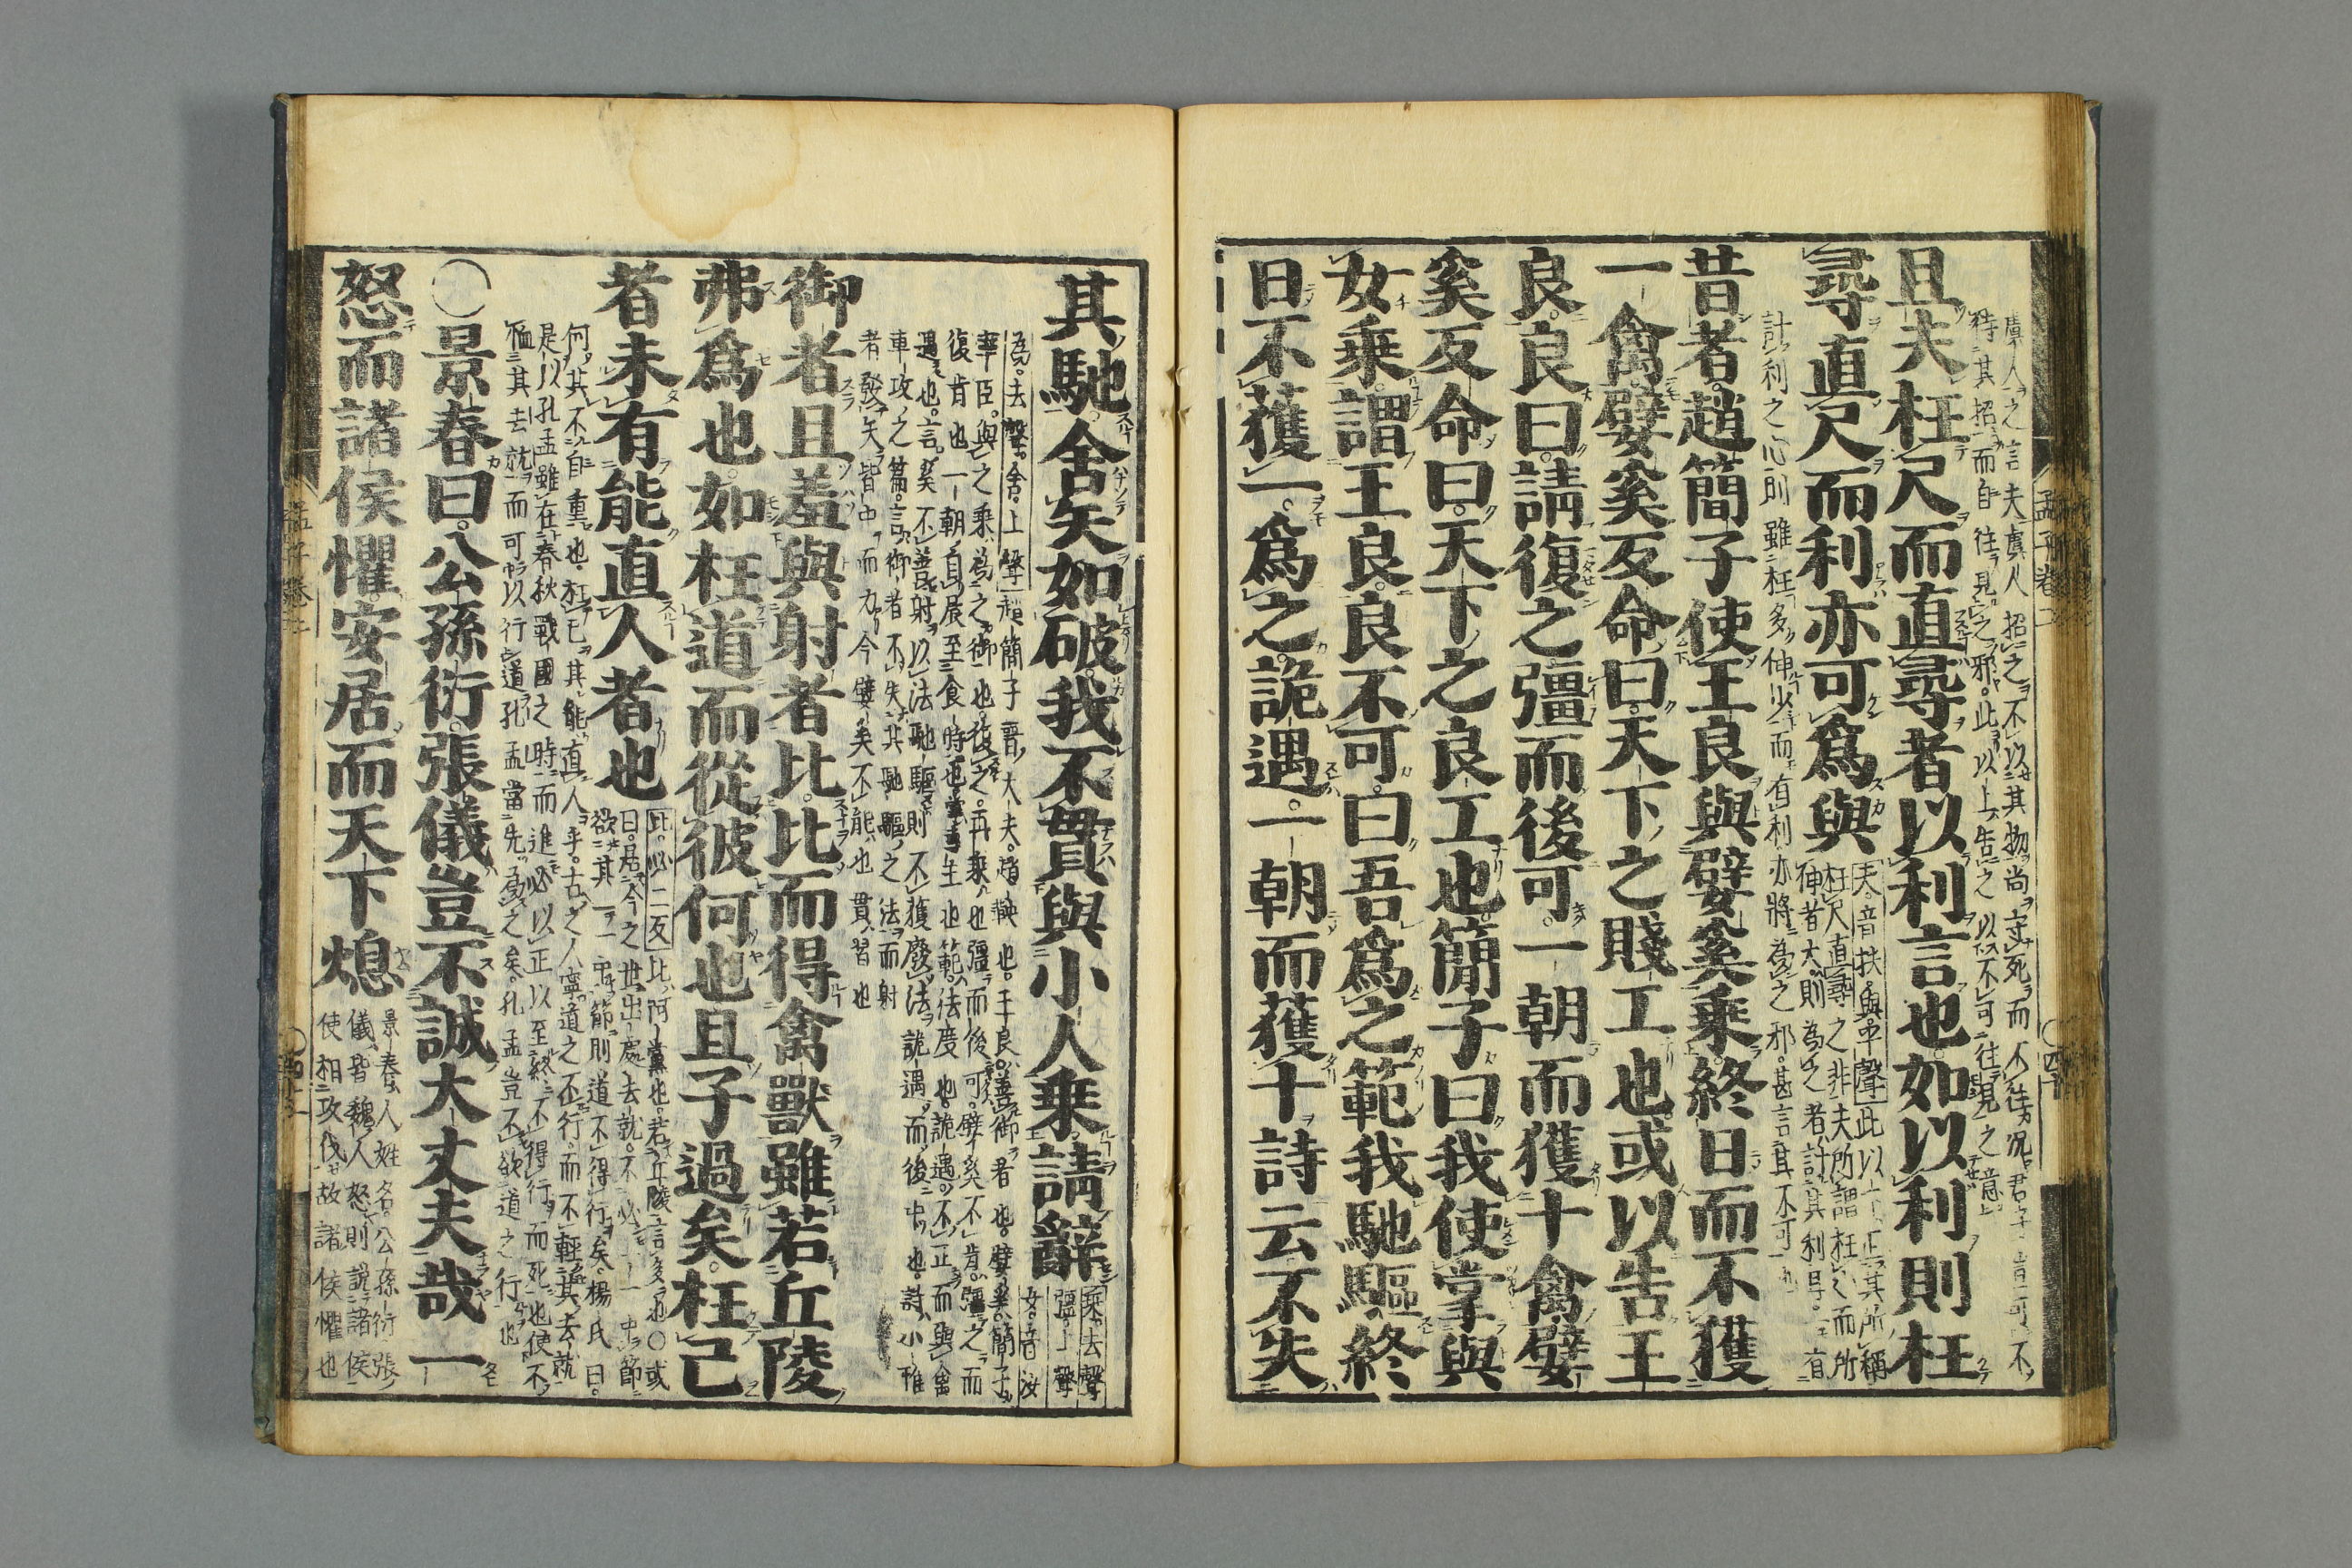 虞人之言夫虞人招之不以其物尚守死而不往況君子豈可不
待其招而自往見之邪此以上告之以不可往見之意
且夫枉尺而直尋者以利言也如以利則枉
尋直尺而利亦可爲與
夫音扶與平聲此以下正其所稱
枉尺直尋之非夫所謂枉小而所
伸者大則爲之者計其利耳一有
計利之心則雖枉多伸少而有利亦將爲之邪甚言其不可也
昔者趙簡子使王良與嬖奚乘終日而不獲
一禽嬖奚反命曰天下之賤工也或以告王
良良曰請復之彊而後可一朝而獲十禽嬖
奚反命曰天下之良工也簡子曰我使掌與
女乘謂王良良不可曰吾爲之範我馳驅終
日不獲一爲之詭遇一朝而獲十詩云不失
其馳舍矢如破我不貫與小人乘請辭
乘去聲
彊上聲
女音汝
爲去聲舍上聲趙簡子晋大夫趙鞅也王良善御者也嬖奚簡子
幸臣與之乘爲之御也復之再乘也彊而後可嬖奚不肯彊之而
後肯也一朝自晨至食時也掌專主也範法度也詭遇不正而與禽
遇也言奚不善射以法馳驅則不獲廢法詭遇而後中也詩小雅
車攻之篇言御者不失其馳驅之法而射
者發矢皆中而力今嬖奚不能也貫習也
御者且羞與射者比比而得禽獸雖若丘陵
弗爲也如枉道而從彼何也且子過矣枉己
者未有能直人者也
比必二反比阿黨也若丘陵言多也○或
曰居今之世出處去就不必一一中節
欲其一一中節則道不得行矣楊氏曰
何其不自重也枉己其能直人乎古之人寧道之不行而不輕其去就
是以孔孟雖在春秋戰國之時而進必以正以至終不得行而死也使不
恤其去就而可以行道孔孟當先爲之矣孔孟豈不欲道之行也
○景春曰公孫衍張儀豈不誠大丈夫哉一
怒而諸侯懼安居而天下熄
景春人姓名公孫衍張
儀皆魏人怒則說諸侯
使相攻伐故諸侯懼也